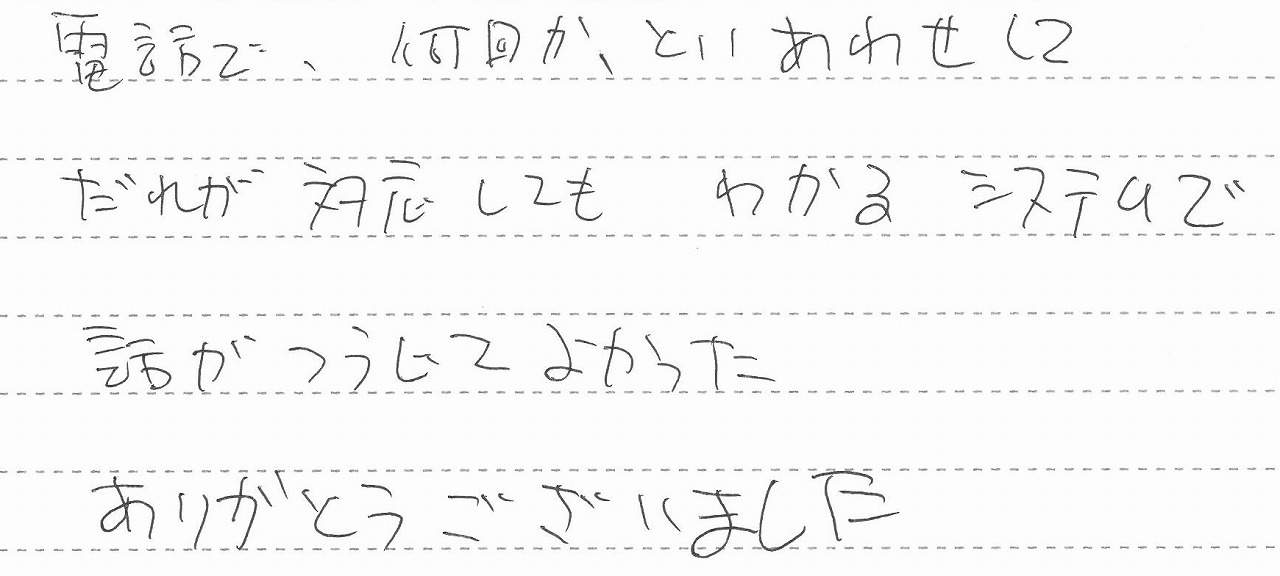 電話で、何回か、といあわせして
だれが対応しても わかる システムで
話がつうじてよかった
ありがとうございました